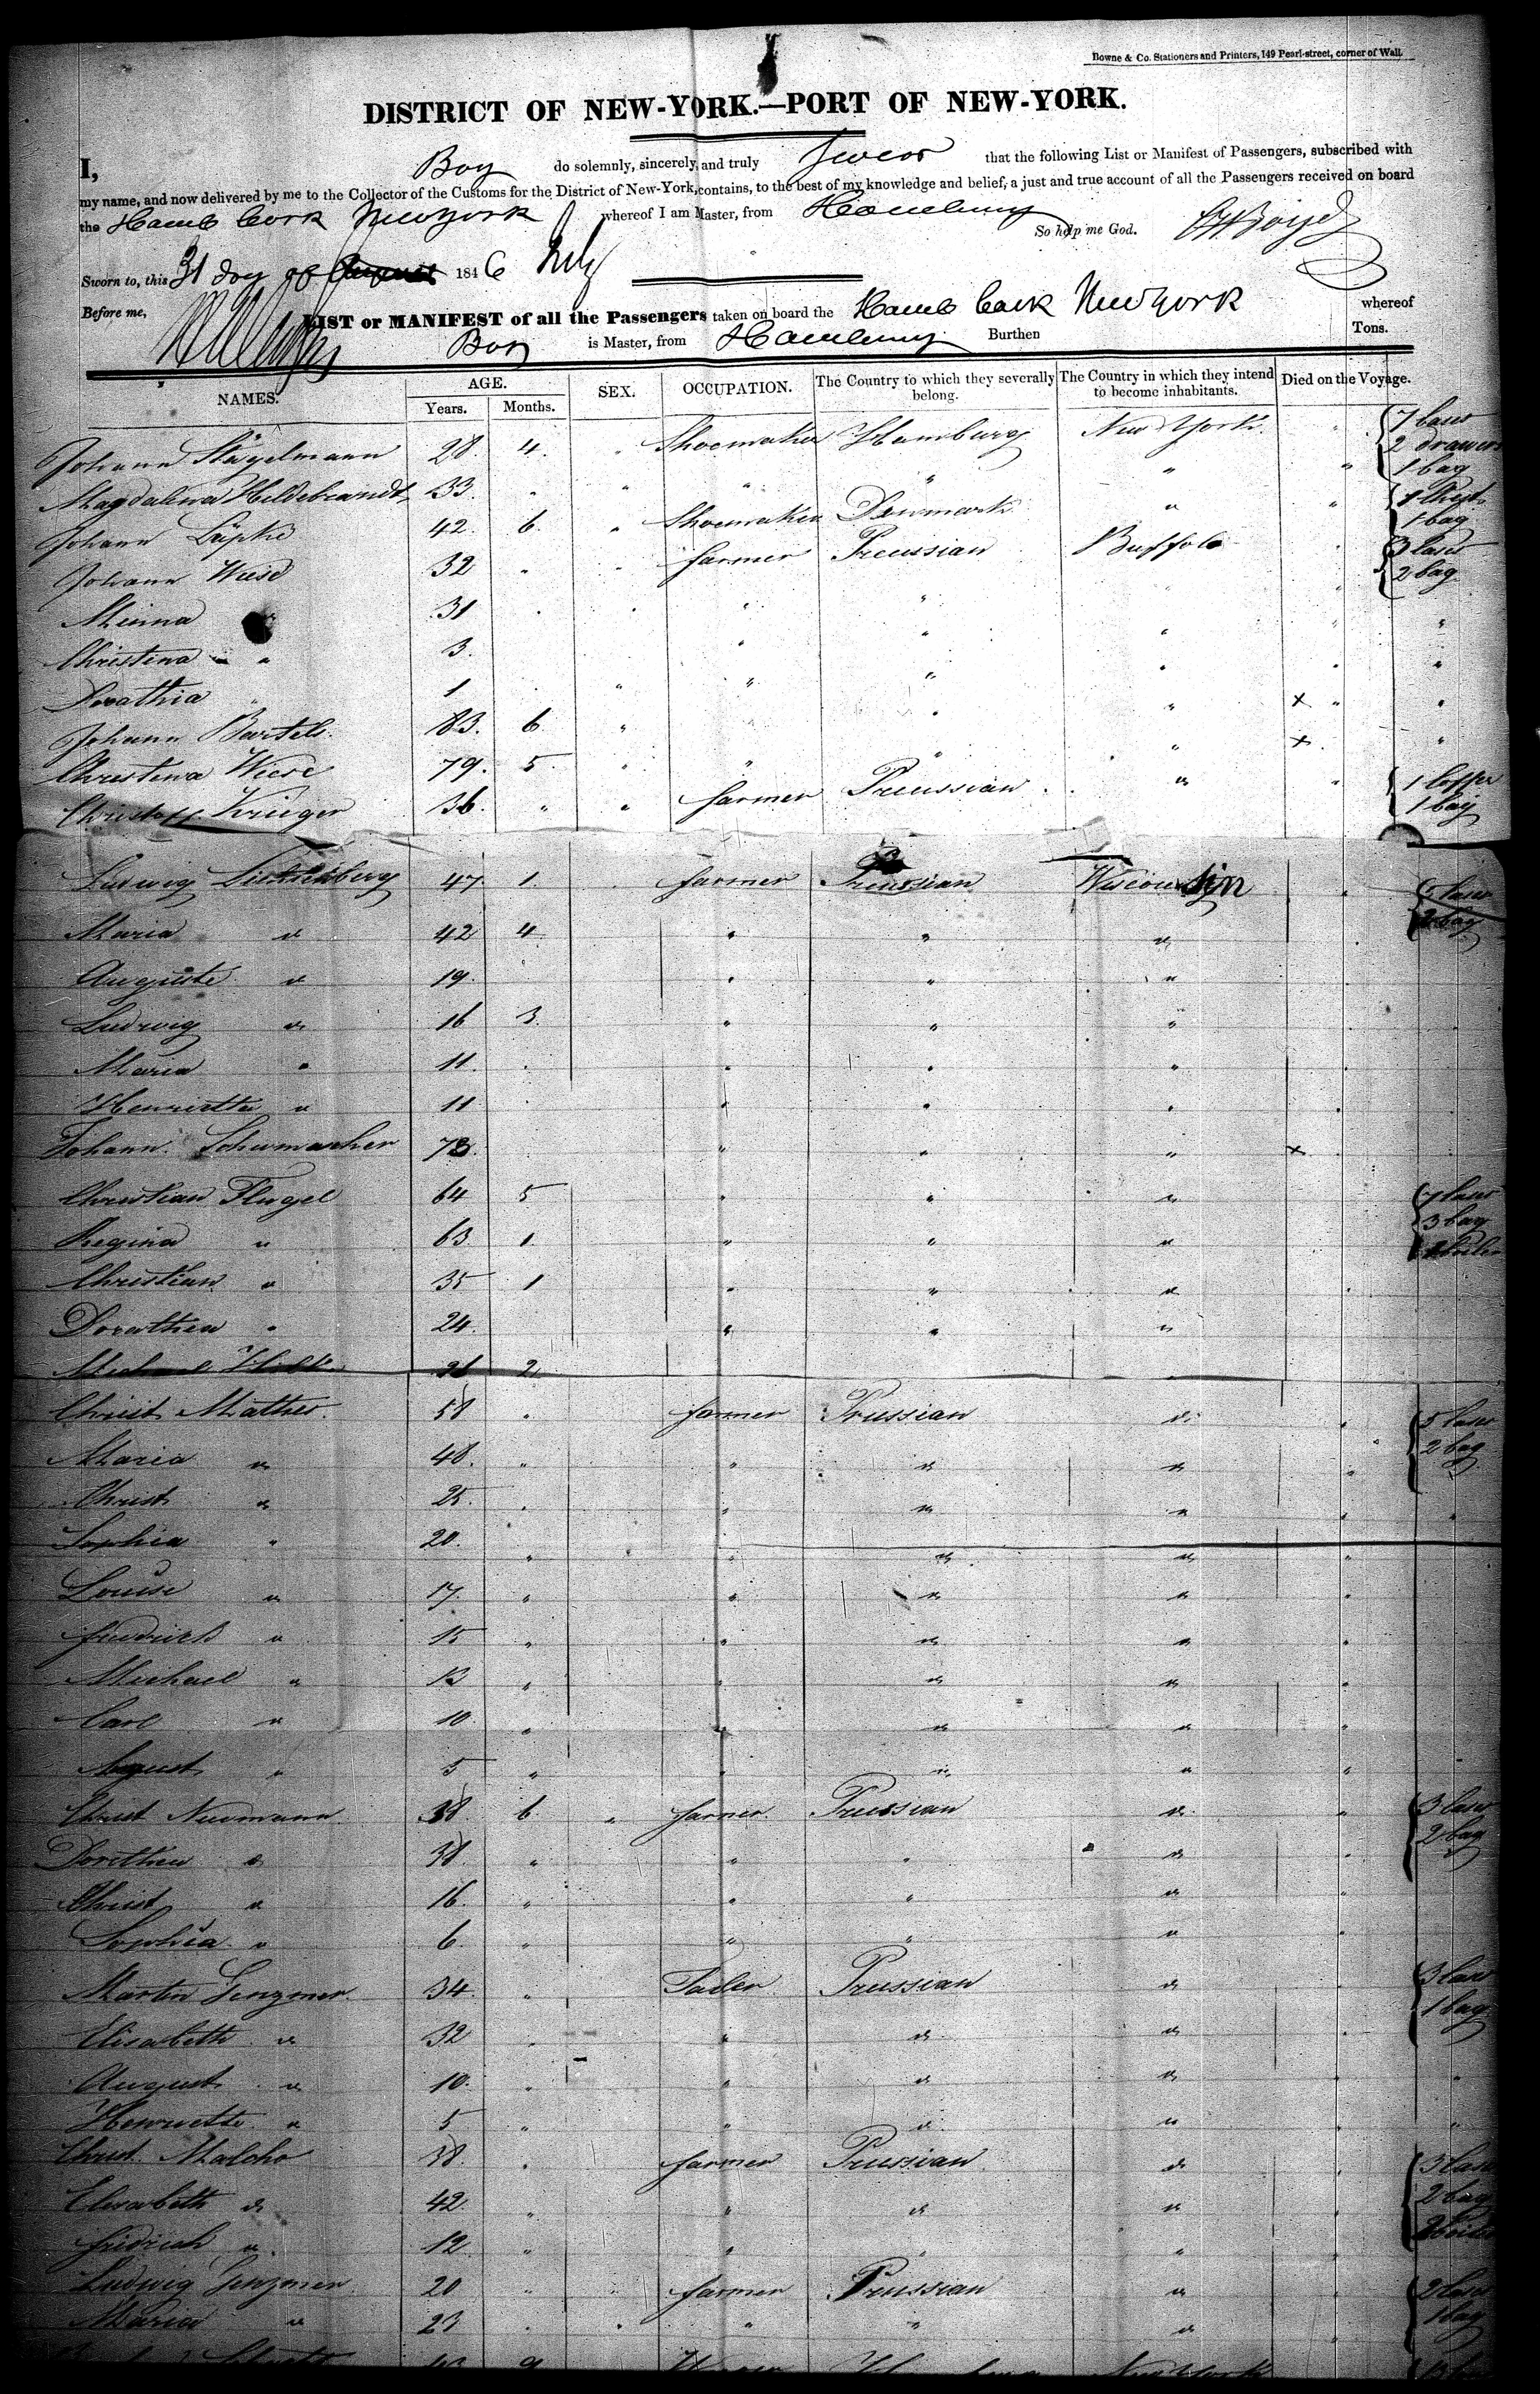 Bowne & Co. Stationers and Printers, 149 Pearl-street, corner of Wall.
DISTRICT OF NEW-YORK.—PORT OF NEW-YORK.
I, Boy do solemnly, sincerely, and truly swear that the following List or Manifest of Passengers, subscribed with
my name, and now delivered by me to the Collector of the Customs for the District of New-York, contains, to the best of my knowledge and belief, a just and true account of all the Passengers received on board
the Hamb bark Newyork whereof I am Master, from Hamburg So help me God.
Sworn to, this 31 day of August 1846 July
Before me,
LIST or MANIFEST of all the Passengers taken on board the Hamb bark Newyork whereof
Boy is Master, from Hamburg Burthen Tons.
NAMES. AGE. Years. Months. SEX. OCCUPATION. The Country to which they severally belong. The Country in which they intend to become inhabitants. Died on the Voyage.
Johann 28. 4. " Shoemaker Hamburg New York. " 7 2 1 bag
Magdalena Hildebrandt 33. " " " " " "
Johann Lüpke 42. 6 " Shoemaker Denmark " " 1 1 bag
Johann Wiese 32 " " farmer Preussian Buffolo 3 2 bag
Minna " 31 " " " "
Christina " 3. " " " "
Dorathia " 1 " " " "
Johann Bartels 83. 6 " " " x "
Christina Wiese 79. 5. " " " " x "
Christoff Krüger 36. " " farmer Preussian " " 1 1 bag
Ludwig 47 1. farmer Preussian Wisconsin " 5
Maria " 42 4 " " "
Auguste " 19. " " "
Ludwig " 16 3. " " "
Maria " 11. " " "
Henriette " 11 " " "
Johann Schumacher 73. " " " x
Christian Flugel 64 5 " " " 7 3 bag
Regina " 63. 1. " " "
Christian " 35 1 " " "
Dorathea " 24. " " "
2
Christ Mathes. 58 " farmer Prussian " " 5 2 bag
Maria " 48. " " " " "
Christ " 25. " " " " "
Sophia " 20. " " " " "
Louise " 17. " " " " "
fredrich " 15 " " " " "
Michael " 13 " " " " "
Carl " 10. " " " " "
August " 5 " " " " "
Christ Neumann 38 6 " farmer. Preussian " " 3 2 bag
Dorethea " 38. " " " "
Christ " 16. " " " "
Sophia " 6. " " " "
Martin Genzmer. 34. " Prussian " 3 1 bag
Elisabeth " 32 " " "
August " 10. " " " "
Henriette " 5 " " " "
Christ. Malcho 38. farmer Prussian " 3 2 bag
Elisabeth " 42 " " " "
fridrich " 12 " " "
Ludwig Genzmer 20 " farmer Prussian " 2 1 bag
Maria " 23 " " "